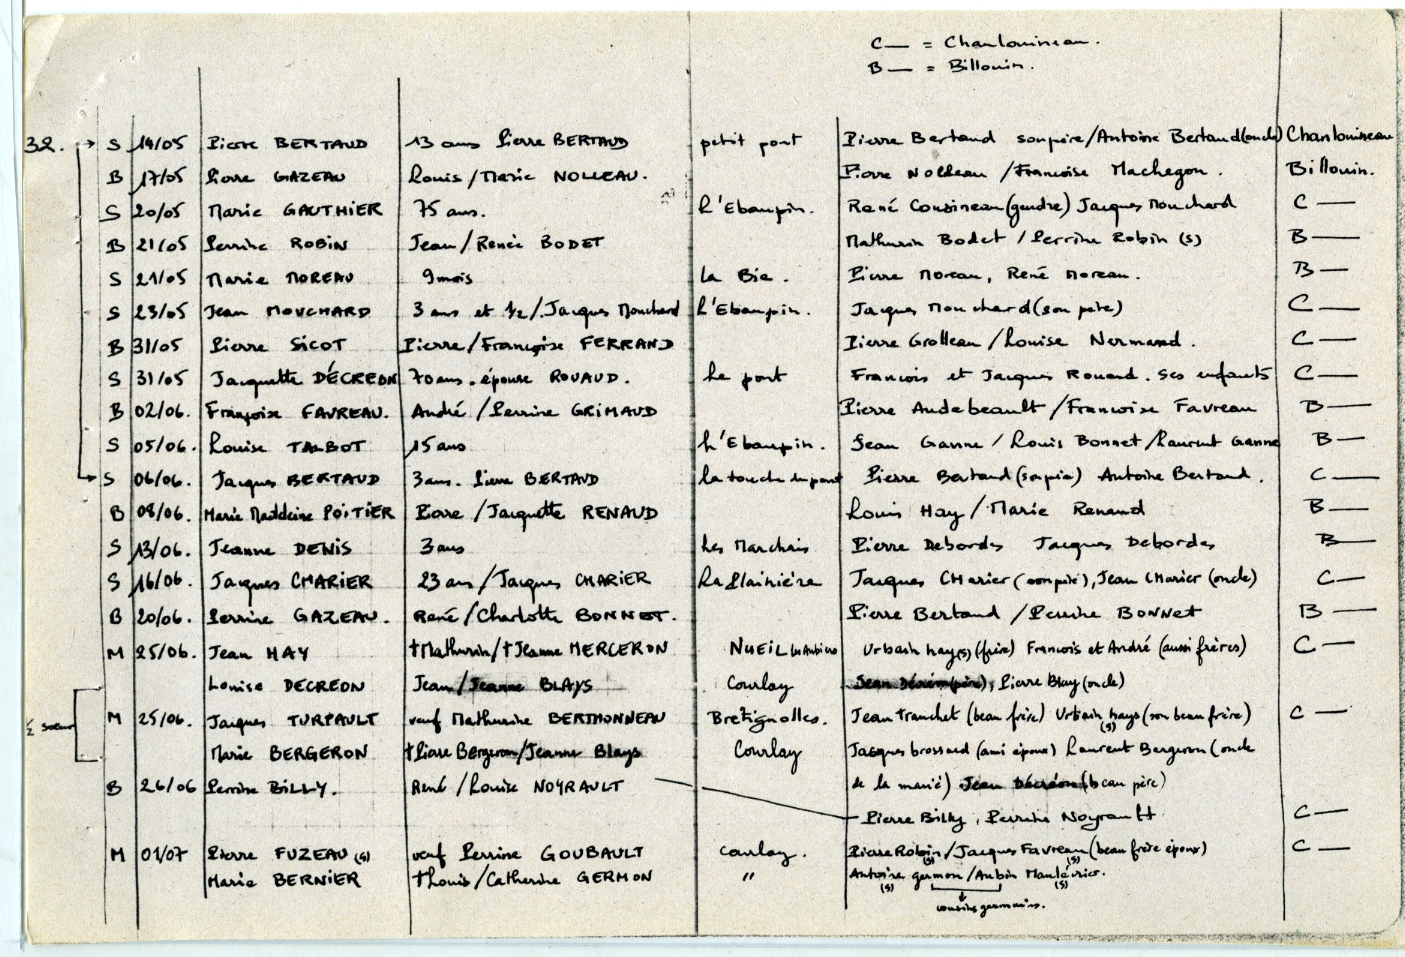 C— = Chanlouineau.
B— = Billouin.
32. → S 14/05 Pierre BERTAUD 13 ans Pierre BERTAUD petit pont Pierre Bertaud son père/Antoine Bertaud (oncle) Chanlouineau
B 17/05 Pierre GAZEAU Louis/Marie NOLLEAU. Pierre Nolleau /Françoise Machegon. Billouin.
S 20/05 Marie GAUTHIER 75 ans. L'Ebaupin. René Cousineau (gendre) Jacques Mouchard C—
B 21/05 Perrine ROBIN Jean/Renée BODET Mathurin Bodet / Perrine Robin (s) B—
S 21/05 Marie MOREAU 9 mois la Bie. Pierre Moreau, René Moreau. B—
S 23/05 Jean MOUCHARD 3 ans et 1/2 /. Jacques Mouchard L'Ebaupin. Jacques Mouchard (son père) C—
B 31/05 Pierre SICOT Pierre/Françoise FERRAND Pierre Grolleau /Louise Normand. C—
S 31/05 Jacquette DÉCREON 70 ans. épouse ROUAUD. Le pont Francois et Jacques Rouaud. Ses enfants C—
B 02/06. Françoise FAVREAU. André /Perrine GRIMAUD Pierre Audebeault /Francoise Favreau B—
S 05/06. Louise TALBOT 15 ans L'Ebaupin. Jean Ganne / Louis Bonnet /Laurent Ganne B—
S 06/06. Jacques BERTAUD 3 ans. Pierre BERTAUD la touche du pont Pierre Bertaud (son père) Antoine Bertaud. C—
B 08/06. Marie Madeleine POITIER Pierre /Jacquette RENAUD Louis Hay /Marie Renaud B—
S 13/06. Jeanne DENIS 3 ans Les Marchais Pierre Debordes Jacques Debordes B—
S 16/06. Jacques CHARIER 23 ans /Jacques CHARIER La Plainière Jacques CHarier (son père), Jean CHarier (oncle) C—
B 20/06. Perrine GAZEAU. René/Charlotte BONNET. Pierre Bertaud /Perrine BONNET B—
M 25/06. Jean HAY †Mathurin/†Jeanne MERCERON NUEIL les Aubiers Urbain hay (s) (frère) Francois et André (aussi frères) C—
Louise DECREON Jean/Jeanne BLAYS Courlay Jean Décréon (père), Pierre Blay (oncle)
½ sœurs M 25/06. Jacques TURPAULT veuf Mathurine BERTHONNEAU Bretignolles. Jean tranchet (beau frère) Urbain hays (s) (son beau frère) C—
Marie BERGERON †Pierre Bergeron/Jeanne Blays Courlay Jacques brossard (ami époux) Laurent Bergeron (oncle
de la marié) Jean Décréon (beau père)
B 26/06 Perrine BILLY. René /Louise NOYRAULT Pierre Billy, Perrine Noyrault C—
M 01/07 Pierre FUZEAU (s) veuf Perrine GOUBAULT courlay. Pierre Robin (s) /Jacques Favreau (s) (beau frère époux) C—
Marie BERNIER †Louis /Catherine GERMON " Antoine germon (s) /Aubin Maulévrier. (s)
cousins germains.